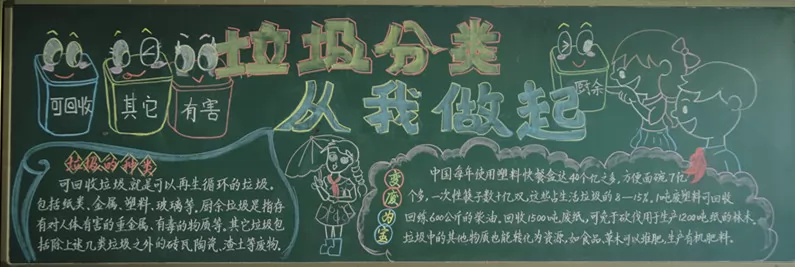 垃圾分类
从我做起
可回收
其它
有害
厨余
垃圾的种类
可回收垃圾就是可以再生循环的垃圾。
包括纸类、金属、塑料、玻璃等。厨余垃圾是指存
有对人体有害的重金属、有毒的物质等。其它垃圾包
括除上述几类垃圾之外的砖瓦陶瓷、渣土等废物。
变废为宝
中国每年使用塑料快餐盒达40个亿之多，方便面碗7亿
个多，一次性筷子数十亿双，这些占生活垃圾的8—15%。1吨废塑料可回收
回炼600公斤的柴油。回收1500吨废纸，可免于砍伐用于生产1200吨纸的林木。
垃圾中的其他物质也能转化为资源，如食品、草木可以堆肥，生产有机肥料。